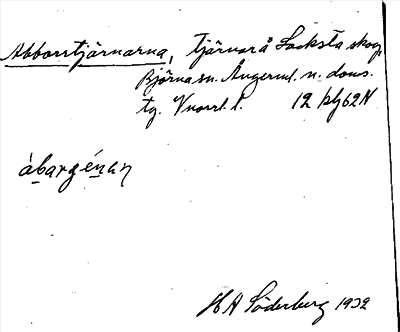 Abborrtjärnarna, tjärnar å Locksta skog,
Björna sn. Ångerml. n. doms.
tg. Vnorrl. l. 12 h/j 62 N
àbargénan
HA Söderberg 1932